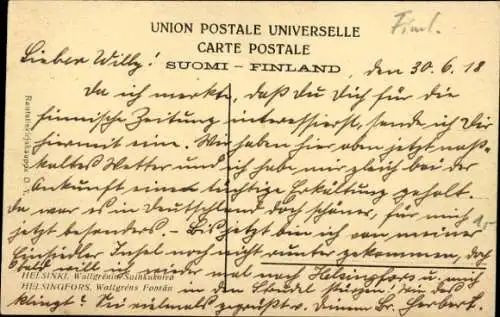 UNION POSTALE UNIVERSELLE
CARTE POSTALE
SUOMI – FINLAND
Finl.
Lieber Willy!
den 30.6.18
Da ich merkte, daß Du Dich für die
finnische Zeitung interessierst, sende ich Dir
hiermit eine. Wir haben hier jetzt naß-
kaltes Wetter und ich habe mir gleich bei der
Ankunft eine tüchtige Erkältung geholt.
da war es in Deutschland doch schöner, für mich
jetzt besonders. – Bis jetzt bin ich von meiner
Einsiedler Insel noch nicht runter gekommen, doch
bald will ich wieder mal nach Helsingfors u. mich
in den Strudel stürzen! Wie das
klingt! Sei vielmals gegrüßt v. Deinem Br. Herbert.
HELSINKI, Wallgrénin Suihkukaivo
HELSINGFORS, Wallgréns Fontän
Rautatiekirjakauppa O. Y.